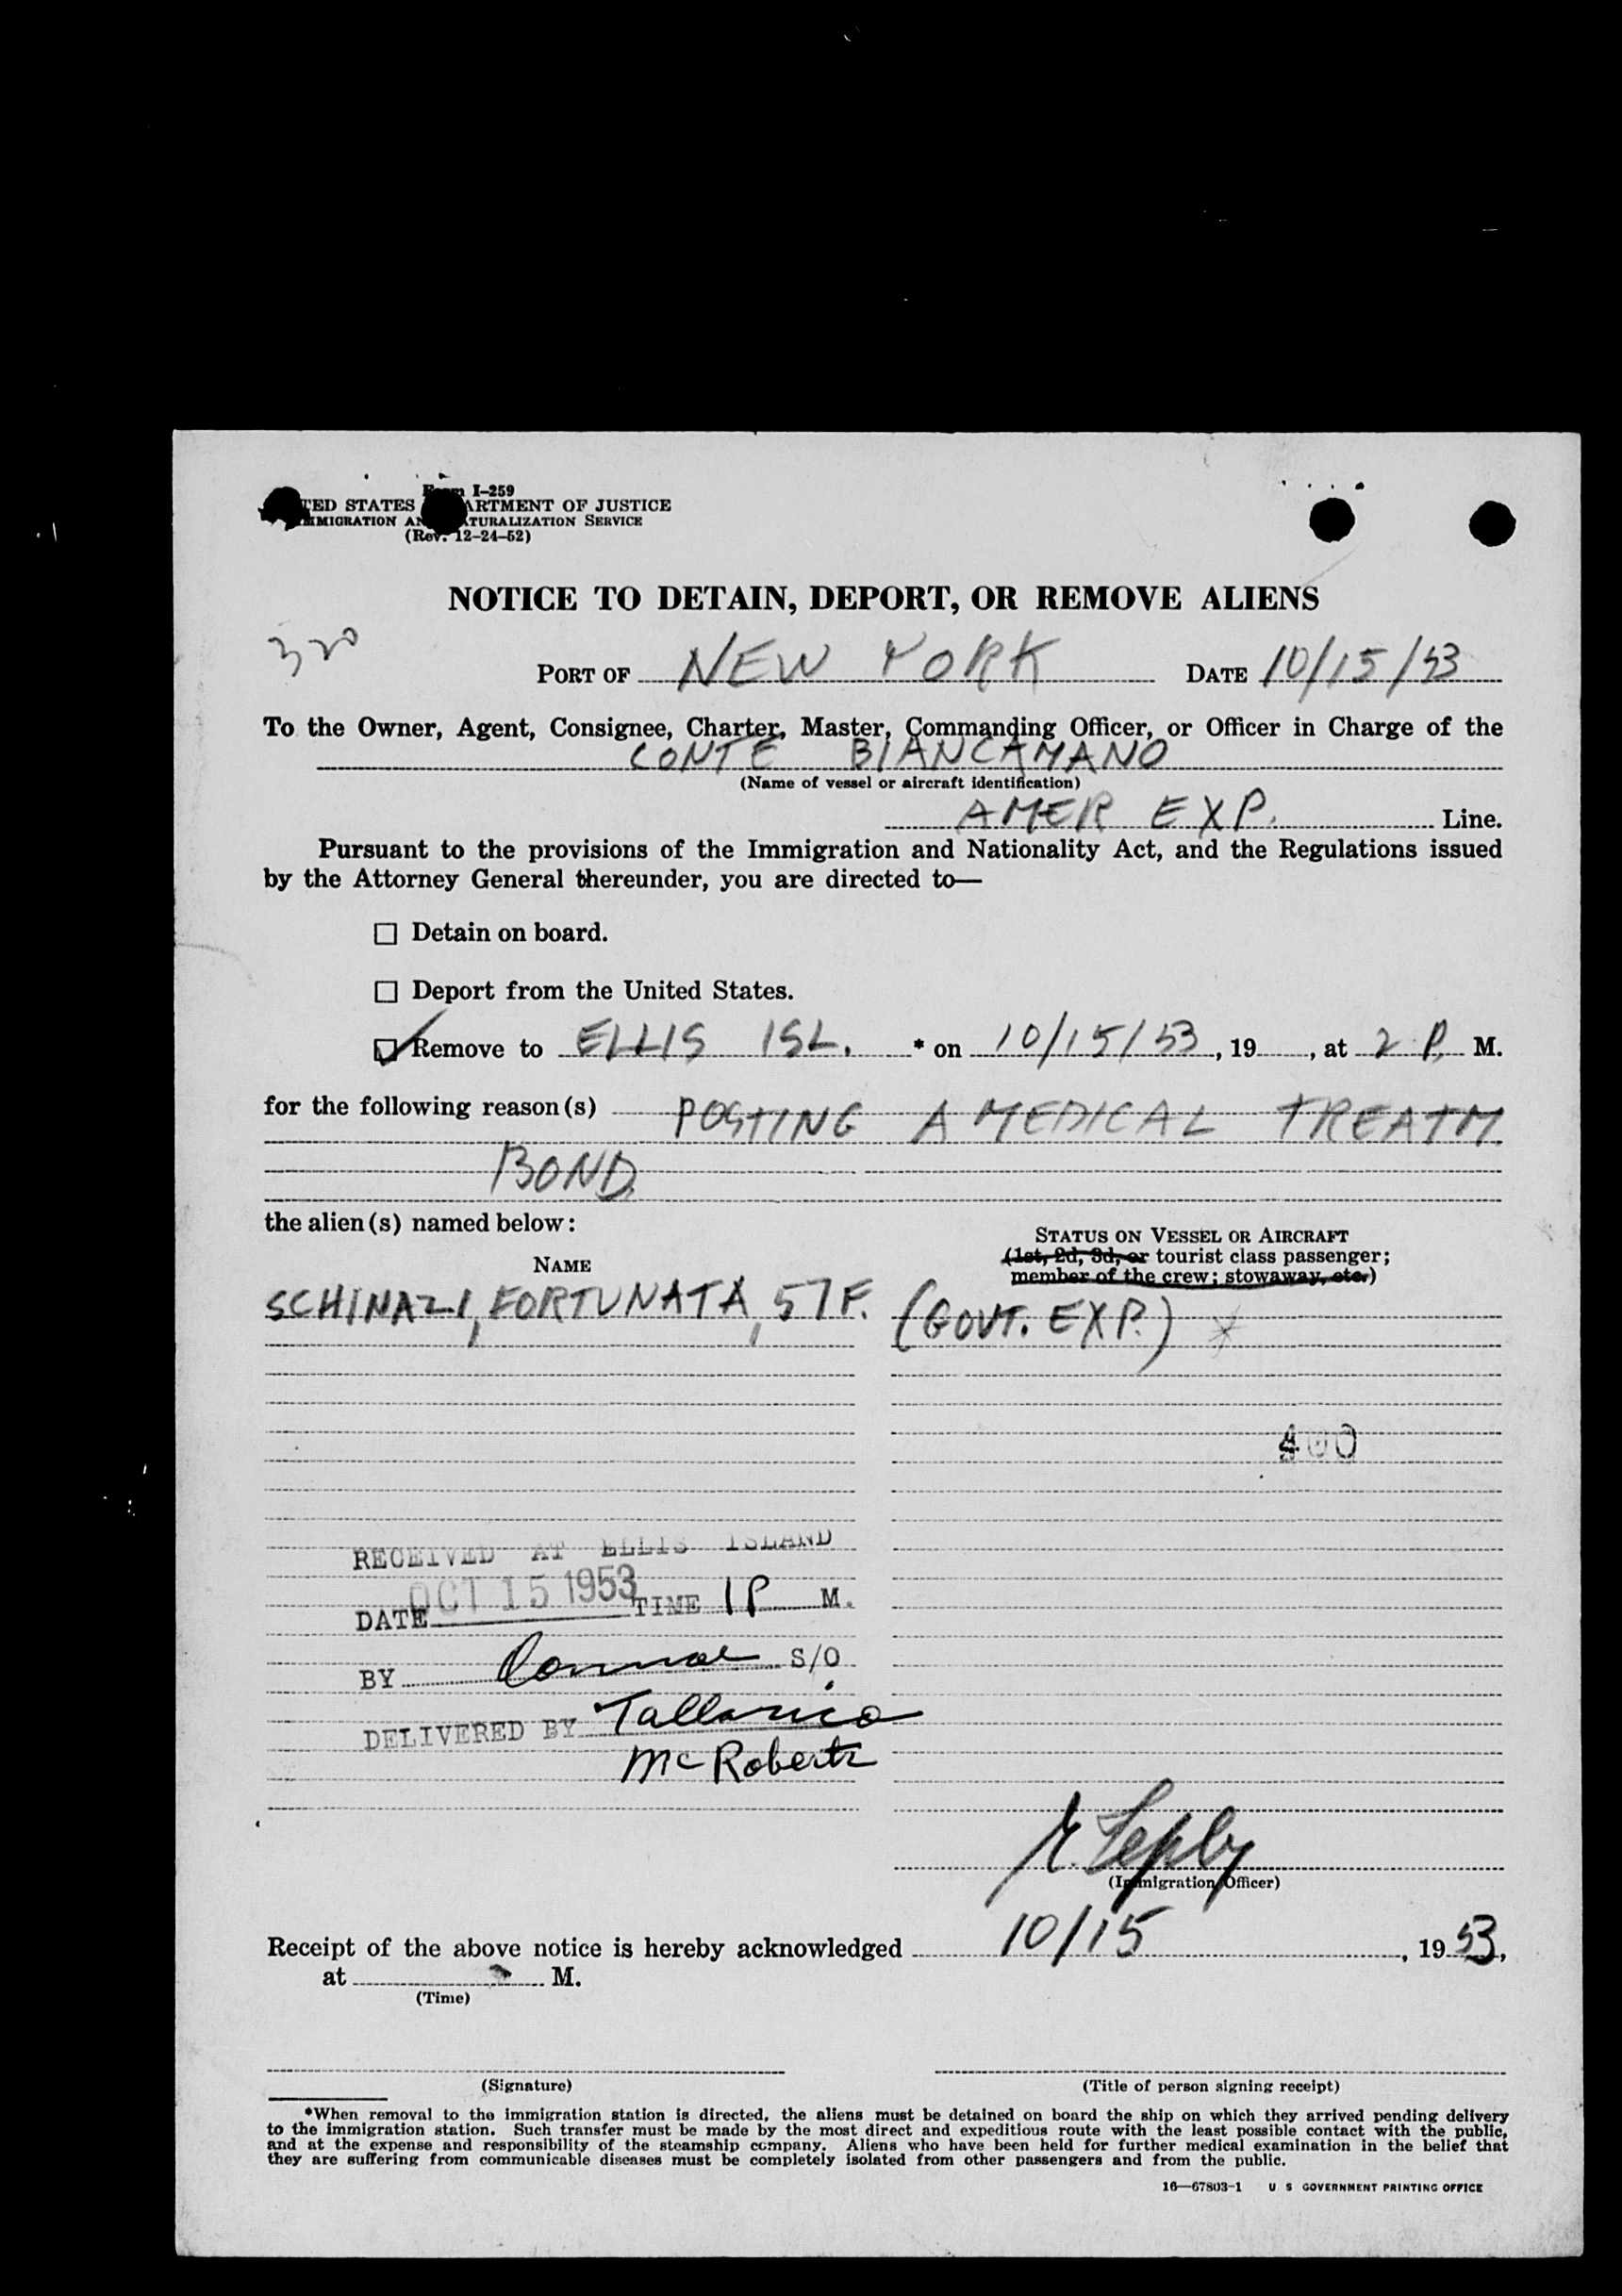 Form I-259
TED STATES ARTMENT OF JUSTICE
MMIGRATION AN TURALIZATION SERVICE
(Rev. 12-24-52)
NOTICE TO DETAIN, DEPORT, OR REMOVE ALIENS
320
PORT OF NEW YORK DATE 10/15/53
To the Owner, Agent, Consignee, Charter, Master, Commanding Officer, or Officer in Charge of the
CONTE BIANCAMANO
(Name of vessel or aircraft identification)
AMER EXP. Line.
Pursuant to the provisions of the Immigration and Nationality Act, and the Regulations issued
by the Attorney General thereunder, you are directed to—
☐ Detain on board.
☐ Deport from the United States.
☑ Remove to ELLIS ISL. * on 10/15/53, 19, at 2 P. M.
for the following reason(s) POSTING A MEDICAL TREATM
BOND
the alien(s) named below:
STATUS ON VESSEL OR AIRCRAFT
(1st, 2d, 3d, or tourist class passenger;
member of the crew; stowaway, etc.)
NAME
SCHINAZI, FORTUNATA, 57 F. (GOVT. EXP.) *
400
RECEIVED AT ELLIS ISLAND
DATE OCT 15 1953 TIME 1 P M.
BY Connor S/O
DELIVERED BY Tallarico
McRoberts
(Immigration Officer)
Receipt of the above notice is hereby acknowledged 10/15, 1953,
at M.
(Time)
(Signature) (Title of person signing receipt)
*When removal to the immigration station is directed, the aliens must be detained on board the ship on which they arrived pending delivery
to the immigration station. Such transfer must be made by the most direct and expeditious route with the least possible contact with the public,
and at the expense and responsibility of the steamship company. Aliens who have been held for further medical examination in the belief that
they are suffering from communicable diseases must be completely isolated from other passengers and from the public.
16—67803-1 U S GOVERNMENT PRINTING OFFICE